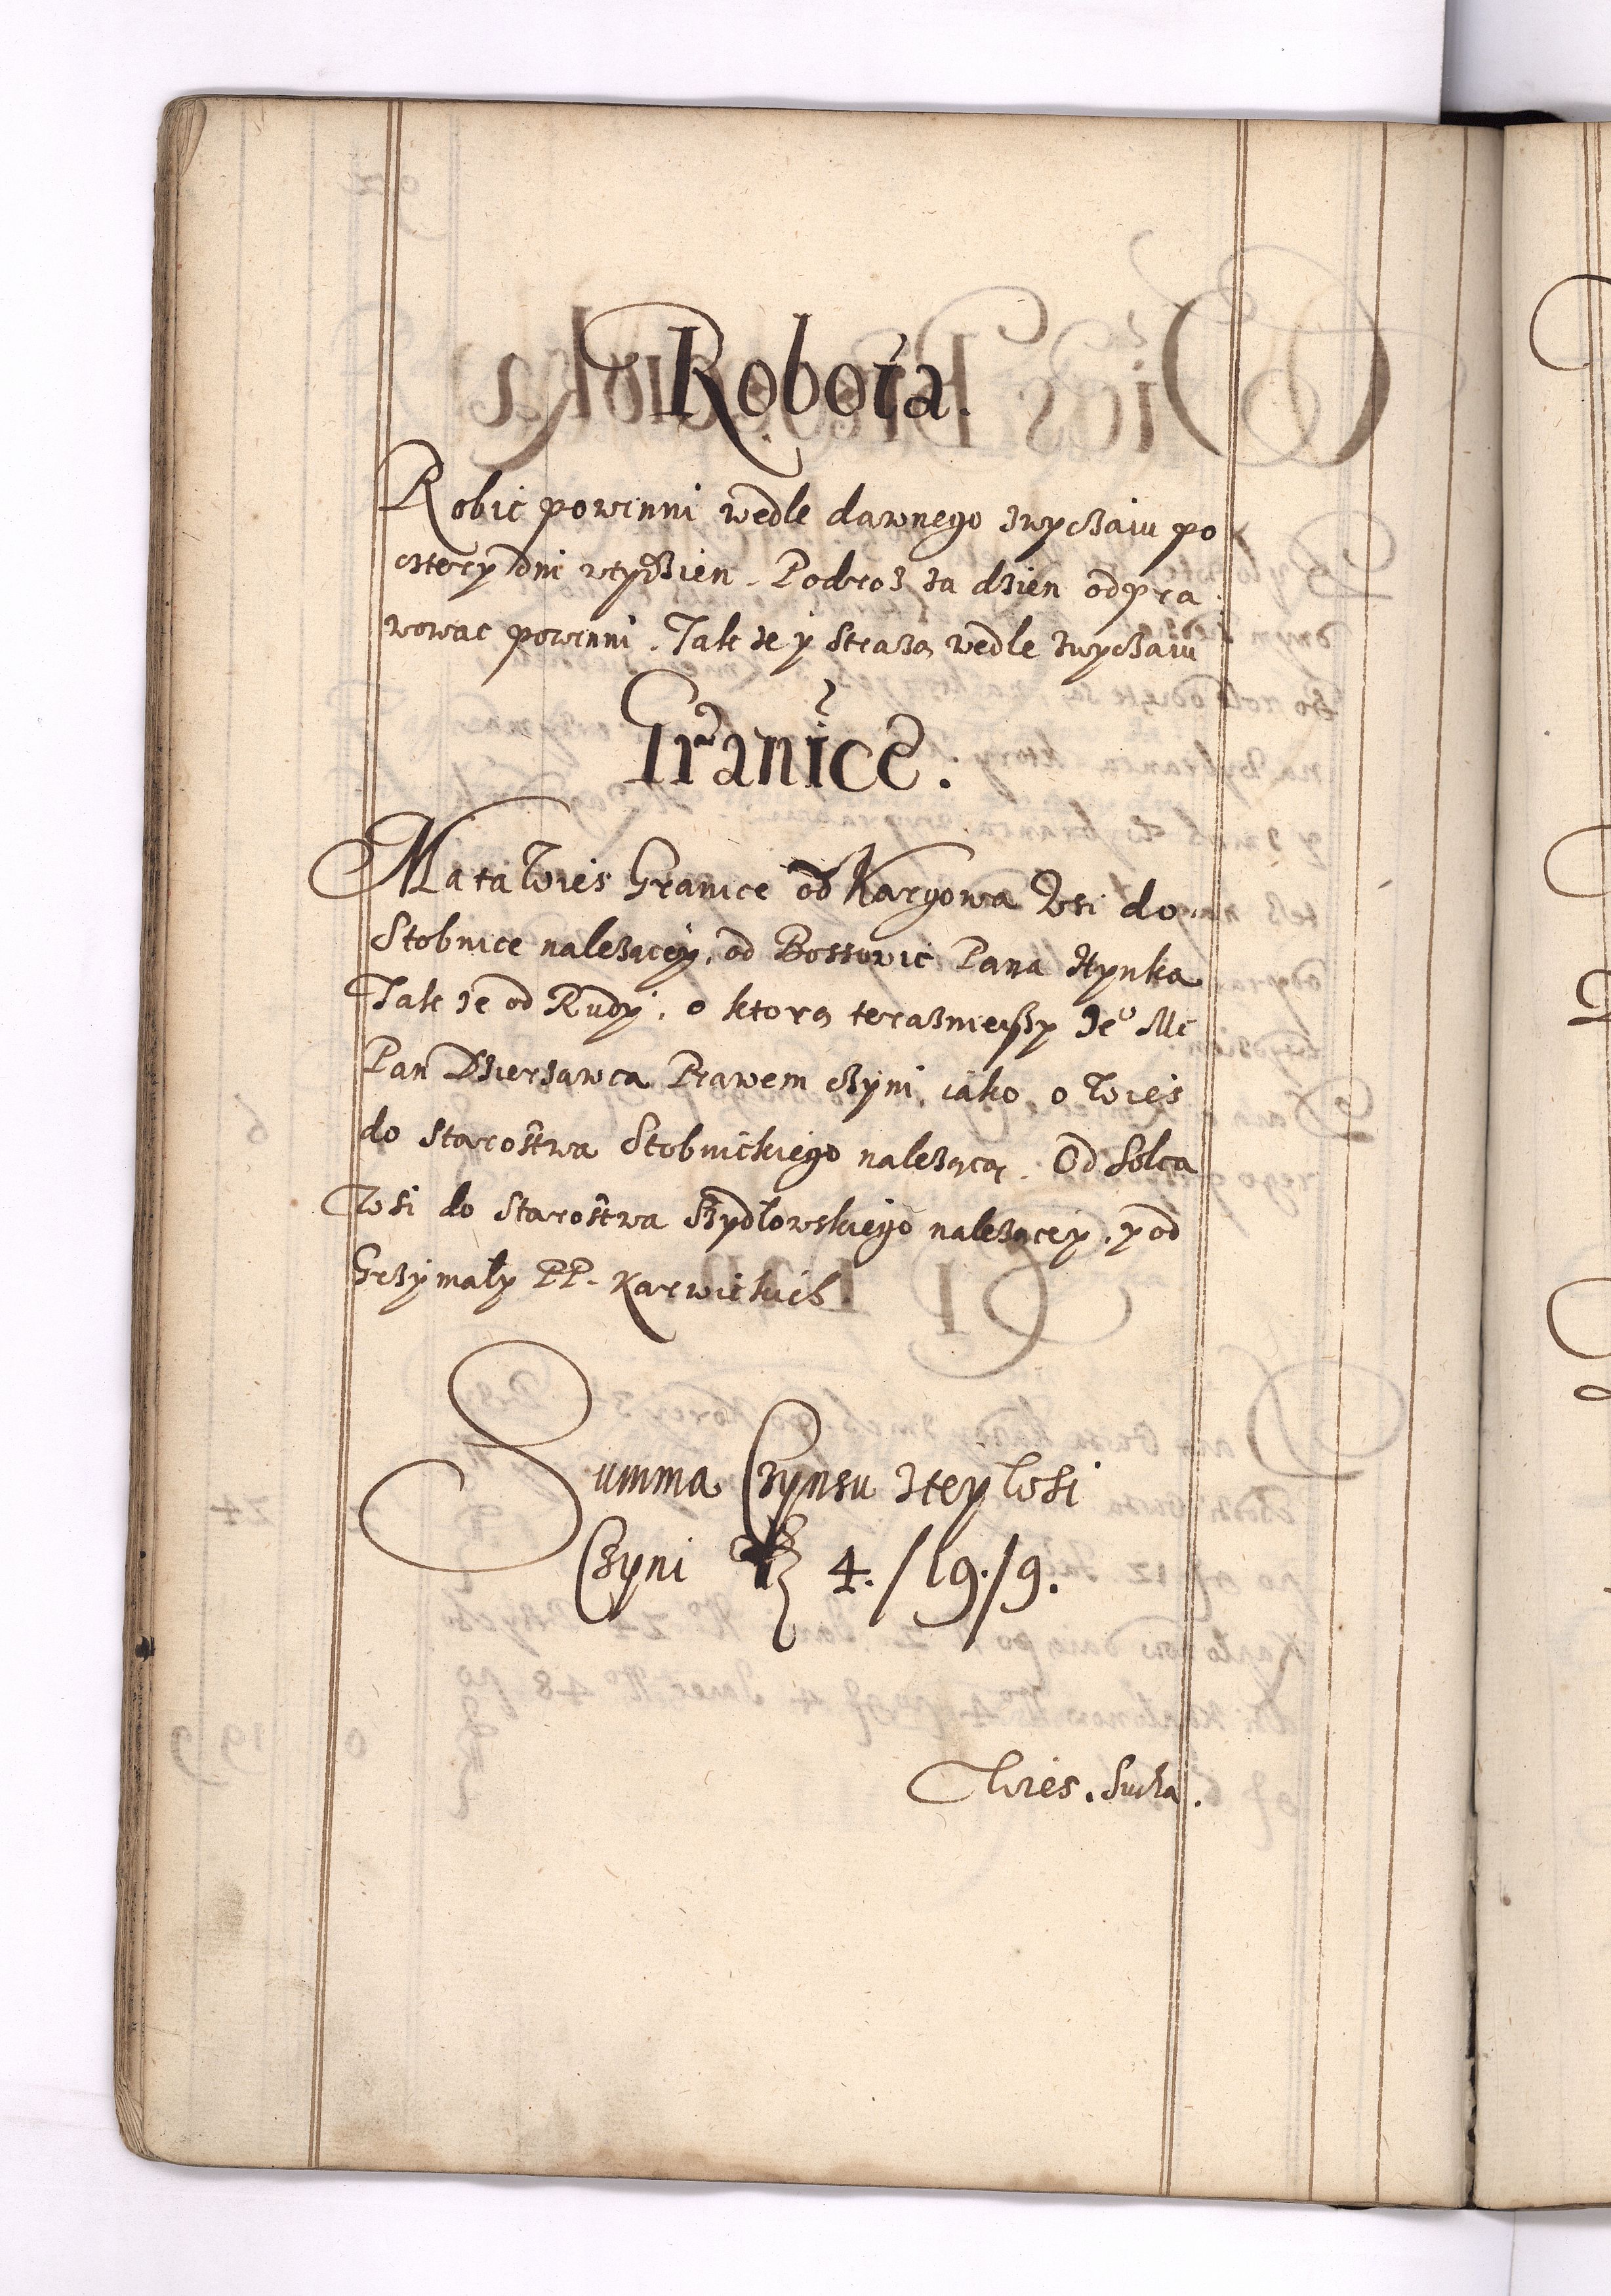 Robota.
Robic powinni wedle dawnego zwyczaiu po
cztery dni wtydzien. Podroz za dzien odpra
wowac powinni. Tak ze y Strazą wedle zwyczaiu
Granice.
Ma ta Wies Granice od Kargowa Wsi do
Stobnice nalezącey, od Bossowic Pana Hynka
Tak ze od Rudy, o ktorą teraznieyszy Je⁰ Mc
Pan Dzierzawca Prawem czyni, iako, o Wies
do Starostwa Stobnickiego nalezącą. Od Solca
Wsi do Starostwa Szydlowskiego nalezącey, y od
Grzymały PP. Karwickich
Summa Czynsu ztey Wsi
Czyni 4./19./9.
Wies. Sucha.